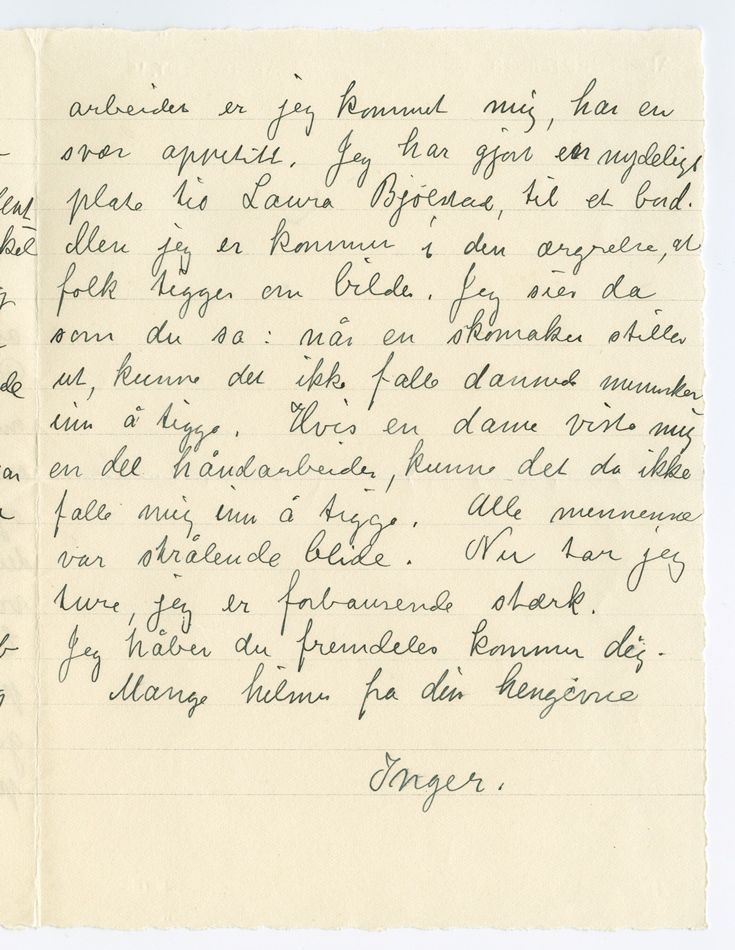 arbeidet er jeg kommet mig, har en
svær appetitt. Jeg har gjort en nydeligt
plate til Laura Bjølstad, til et bord.
Men jeg er kommen i den ærgrelse, at
folk tigger om bilder. Jeg sier da
som du sa: når en skomaker stiller
ut, kunne det ikke falle dannede mennesker
inn å tigge. Hvis en dame viste mig
en del håndarbeider, kunne det da ikke
falle mig inn å tigge. Alle mennene
var strålende blide. Nu tar jeg
ture, jeg er forbausende stærk.
Jeg håber du fremdeles kommer dig.
Mange hilsner fra din hengivne
Inger.